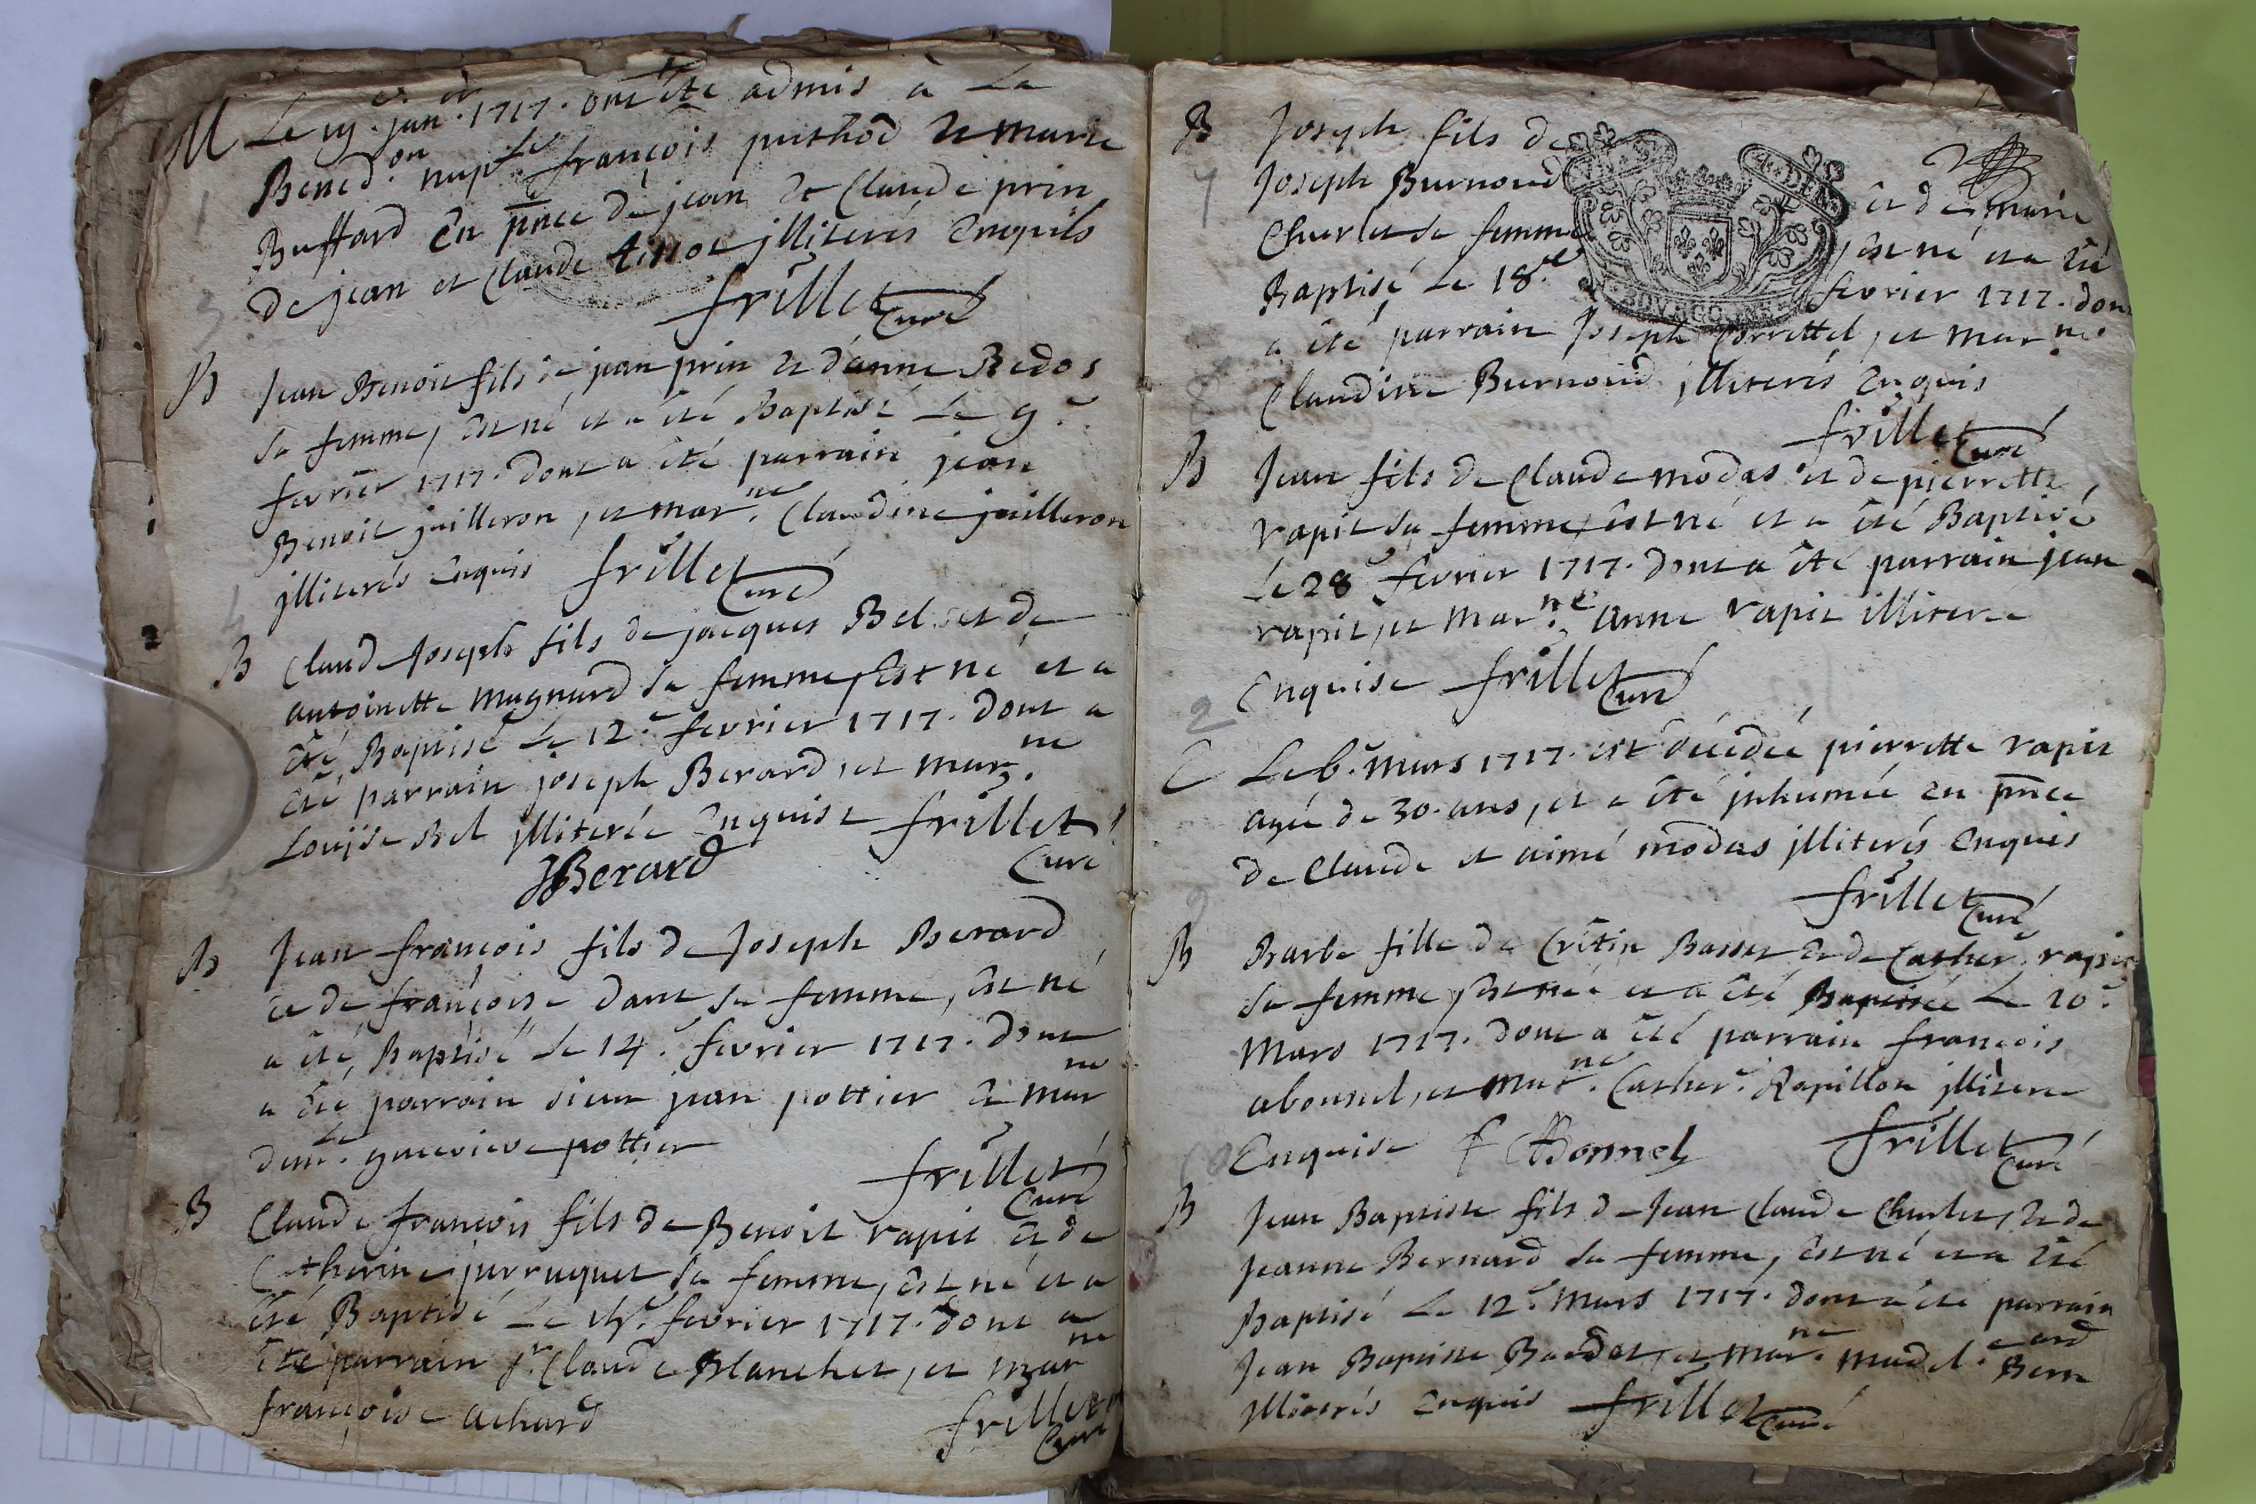 M Le 19. jan.er 1717. ont été admis à La
Bened.on nup.le françois puthod et marie
Buffard en pnce de jean et Claude prin
de jean et Claude tissot jlliterés enquis
frillet Curé
B Jean Benoit fils de jean prin et d'anne Bedos
sa femme, est né et a été Baptisé Le 9.e
fevrier 1717. dont a été parrain jean
Benoit juilleron, et mar.ne Claudine juilleron
jlliterés enquis frillet Curé
B Claude Joseph fils de jacques Bel et de
antoinette magnard sa femme, est né et a
été Baptisé Le 12.e fevrier 1717. dont a
été parrain joseph Berard, et mar.ne
Louise Bel jlliterée enquise frillet
JBerard Curé
B Jean françois fils de Joseph Berard
et de françoise dant sa femme, est né
a été Baptisé le 14.e fevrier 1717. dont
a été parrain sieur jean pottier et mar.ne
dem.le genevieve pottier
frillet Curé
B Claude françois fils de Benoit rapit et de
Catherine perruquet sa femme, est né et a
été Baptisé Le fevrier 1717. dont a
été parrain s.r Claude Blanchet, et mar.ne
françoise achard frillet Curé
B Joseph fils de
Joseph Burnoud et de marie
Charlet sa femme, est né et a été
Baptisé Le 18.e fevrier 1717. dont
a été parrain Joseph Correttel, et mar.ne
Claudine Burnoud jlliterés enquis
frillet Curé
B Jean fils de Claude modas et de pierrette
rapit sa femme, est né et a été Baptisé
Le 28.e fevrier 1717. dont a été parrain jean
rapit, et mar.ne anne rapit illiterée
Enquise frillet Curé
C Le 6.e Mars 1717. est décédée pierrette rapit
agée de 30. ans, et a été jnhumée en pnce
de Claude et aimé modas jlliterés enquis
frillet Curé
B Barbe fille de Cretin Basset et de Cather.e rapit
sa femme, est née et a été Baptisée Le 10.e
Mars 1717. dont a été parrain françois
abonnel, et mar.ne Cather.e Papillon jlliterée
Enquise f Abonnel frillet Curé
B Jean Baptiste fils de Jean Claude Charlet, et de
jeanne Bernard sa femme, est né et a été
Baptisé Le 12.e Mars 1717. dont a été parrain
Jean Baptiste Baudet, et mar.ne madel.e Bernard
jlliterés enquis frillet Curé